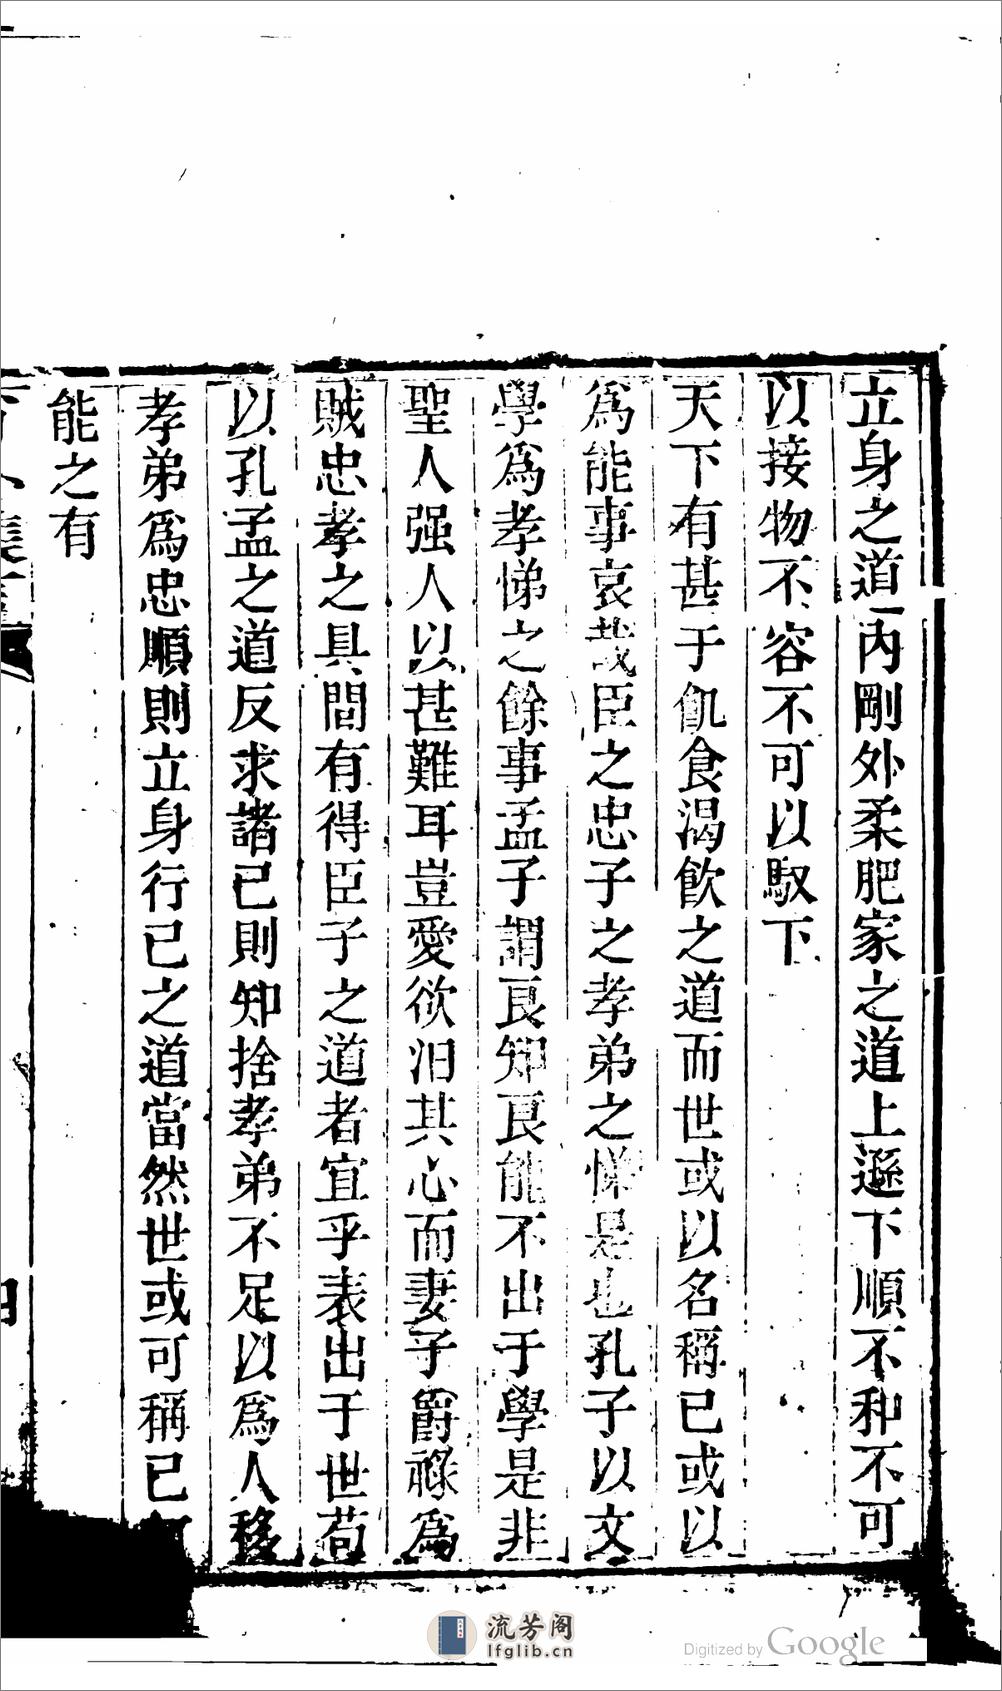 立身之道內剛外柔肥家之道上遜下順不和不可
以接物不容不可以馭下
天下有甚于飢食渴飲之道而世或以名稱已或以
爲能事哀哉臣之忠子之孝弟之悌是也孔子以文
學爲孝悌之餘事孟子謂良知良能不出于學是非
聖人强人以甚難耳豈愛欲汨其心而妻子爵祿爲
賊忠孝之具間有得臣子之道者宜乎表出于世苟
以孔孟之道反求諸已則知捨孝弟不足以爲人移
孝弟爲忠順則立身行已之道當然世或可稱已
能之有
四
流芳阁
lfglib.cn
Digitized by Google